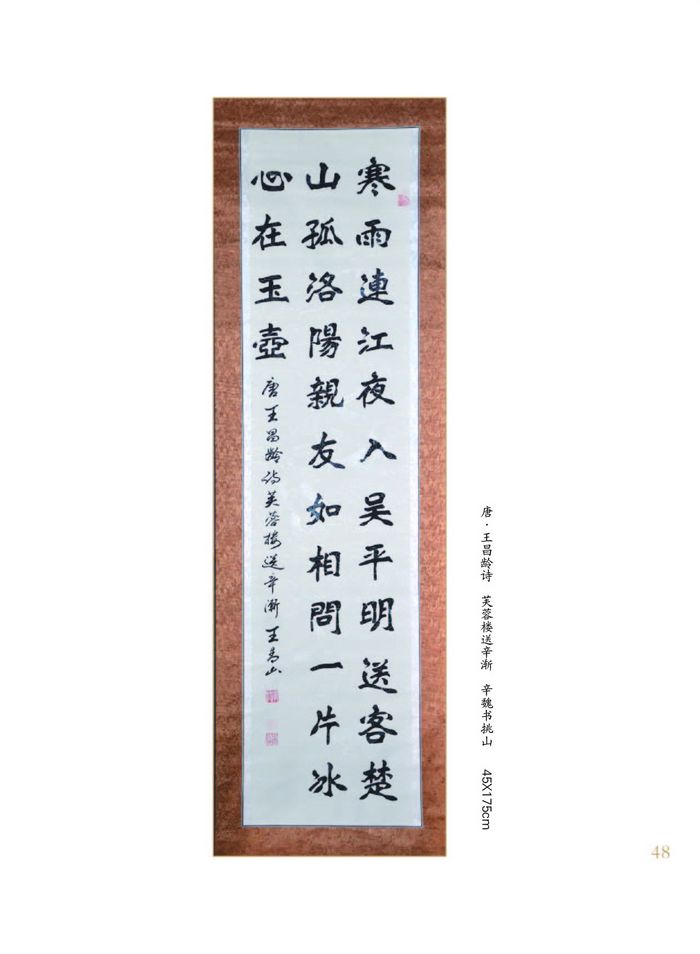 寒雨連江夜入吴平明送客楚
山孤洛陽親友如相問一片冰
心在玉壺
唐王昌齡诗芙蓉楼送辛渐 王
唐·王昌龄诗 芙蓉楼送辛渐 辛魏书挑山 45X175cm
48